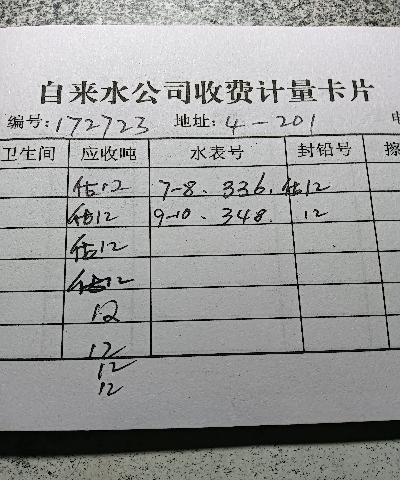 自来水公司收费计量卡片
编号:172723 地址:4-201 电
卫生间 应收吨 水表号 封铅号 擦
估12 7-8. 336. 估12
估12 9-10. 348. 12
估12
估12
12
12
12
12